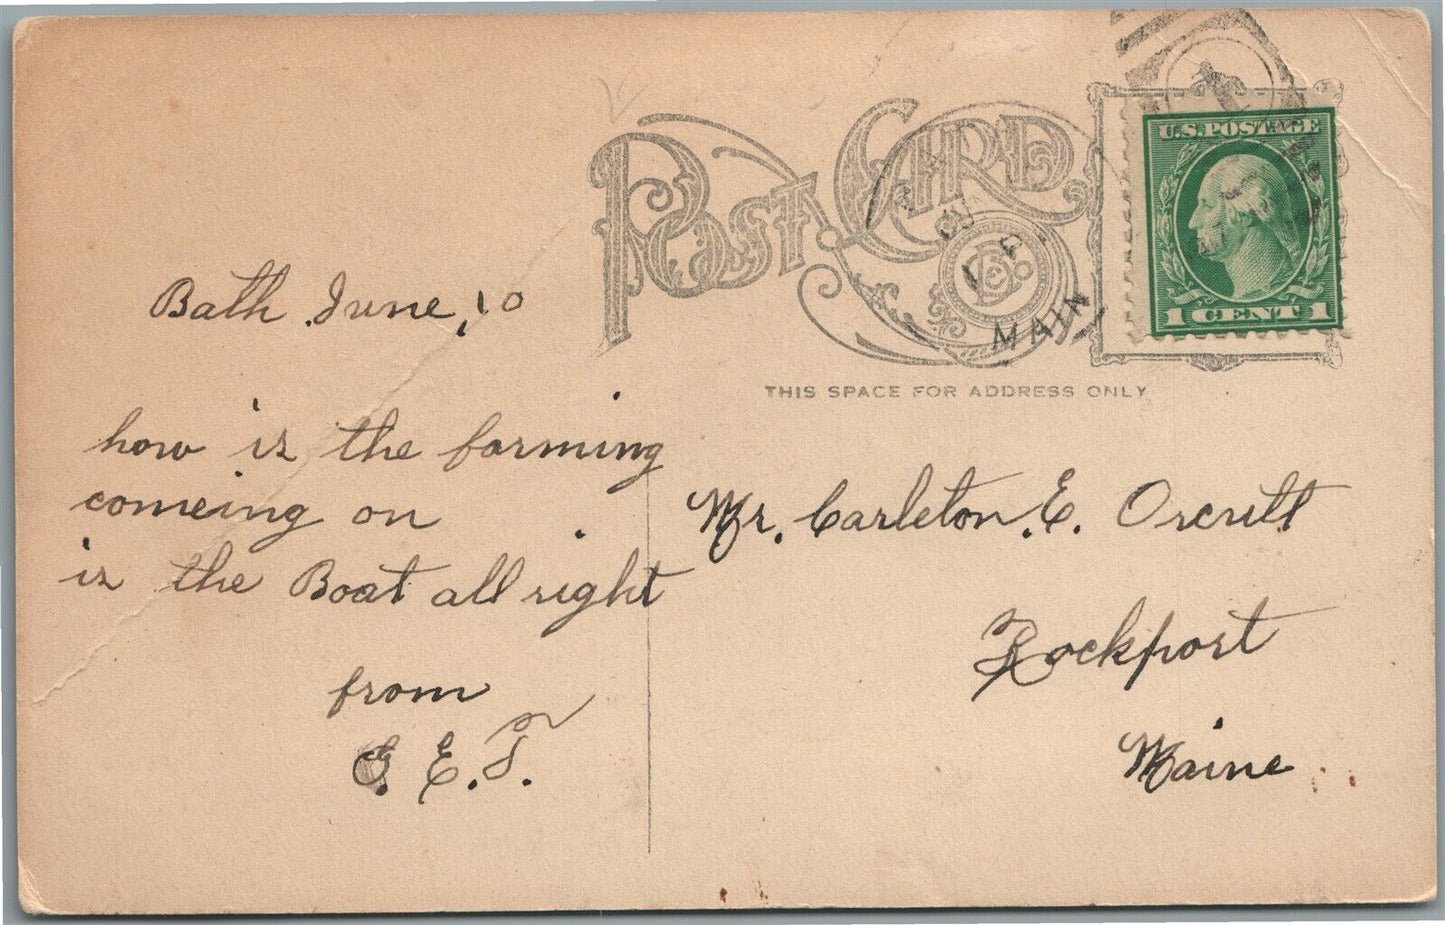 POST CARD
U.S. POSTAGE
1 CENT 1
MAIN
THIS SPACE FOR ADDRESS ONLY
Bath June, 10
how is the farming
comeing on
is the Boat all right
from
E. T.
Mr. Carleton. E. Orcutt
Rockport
Maine